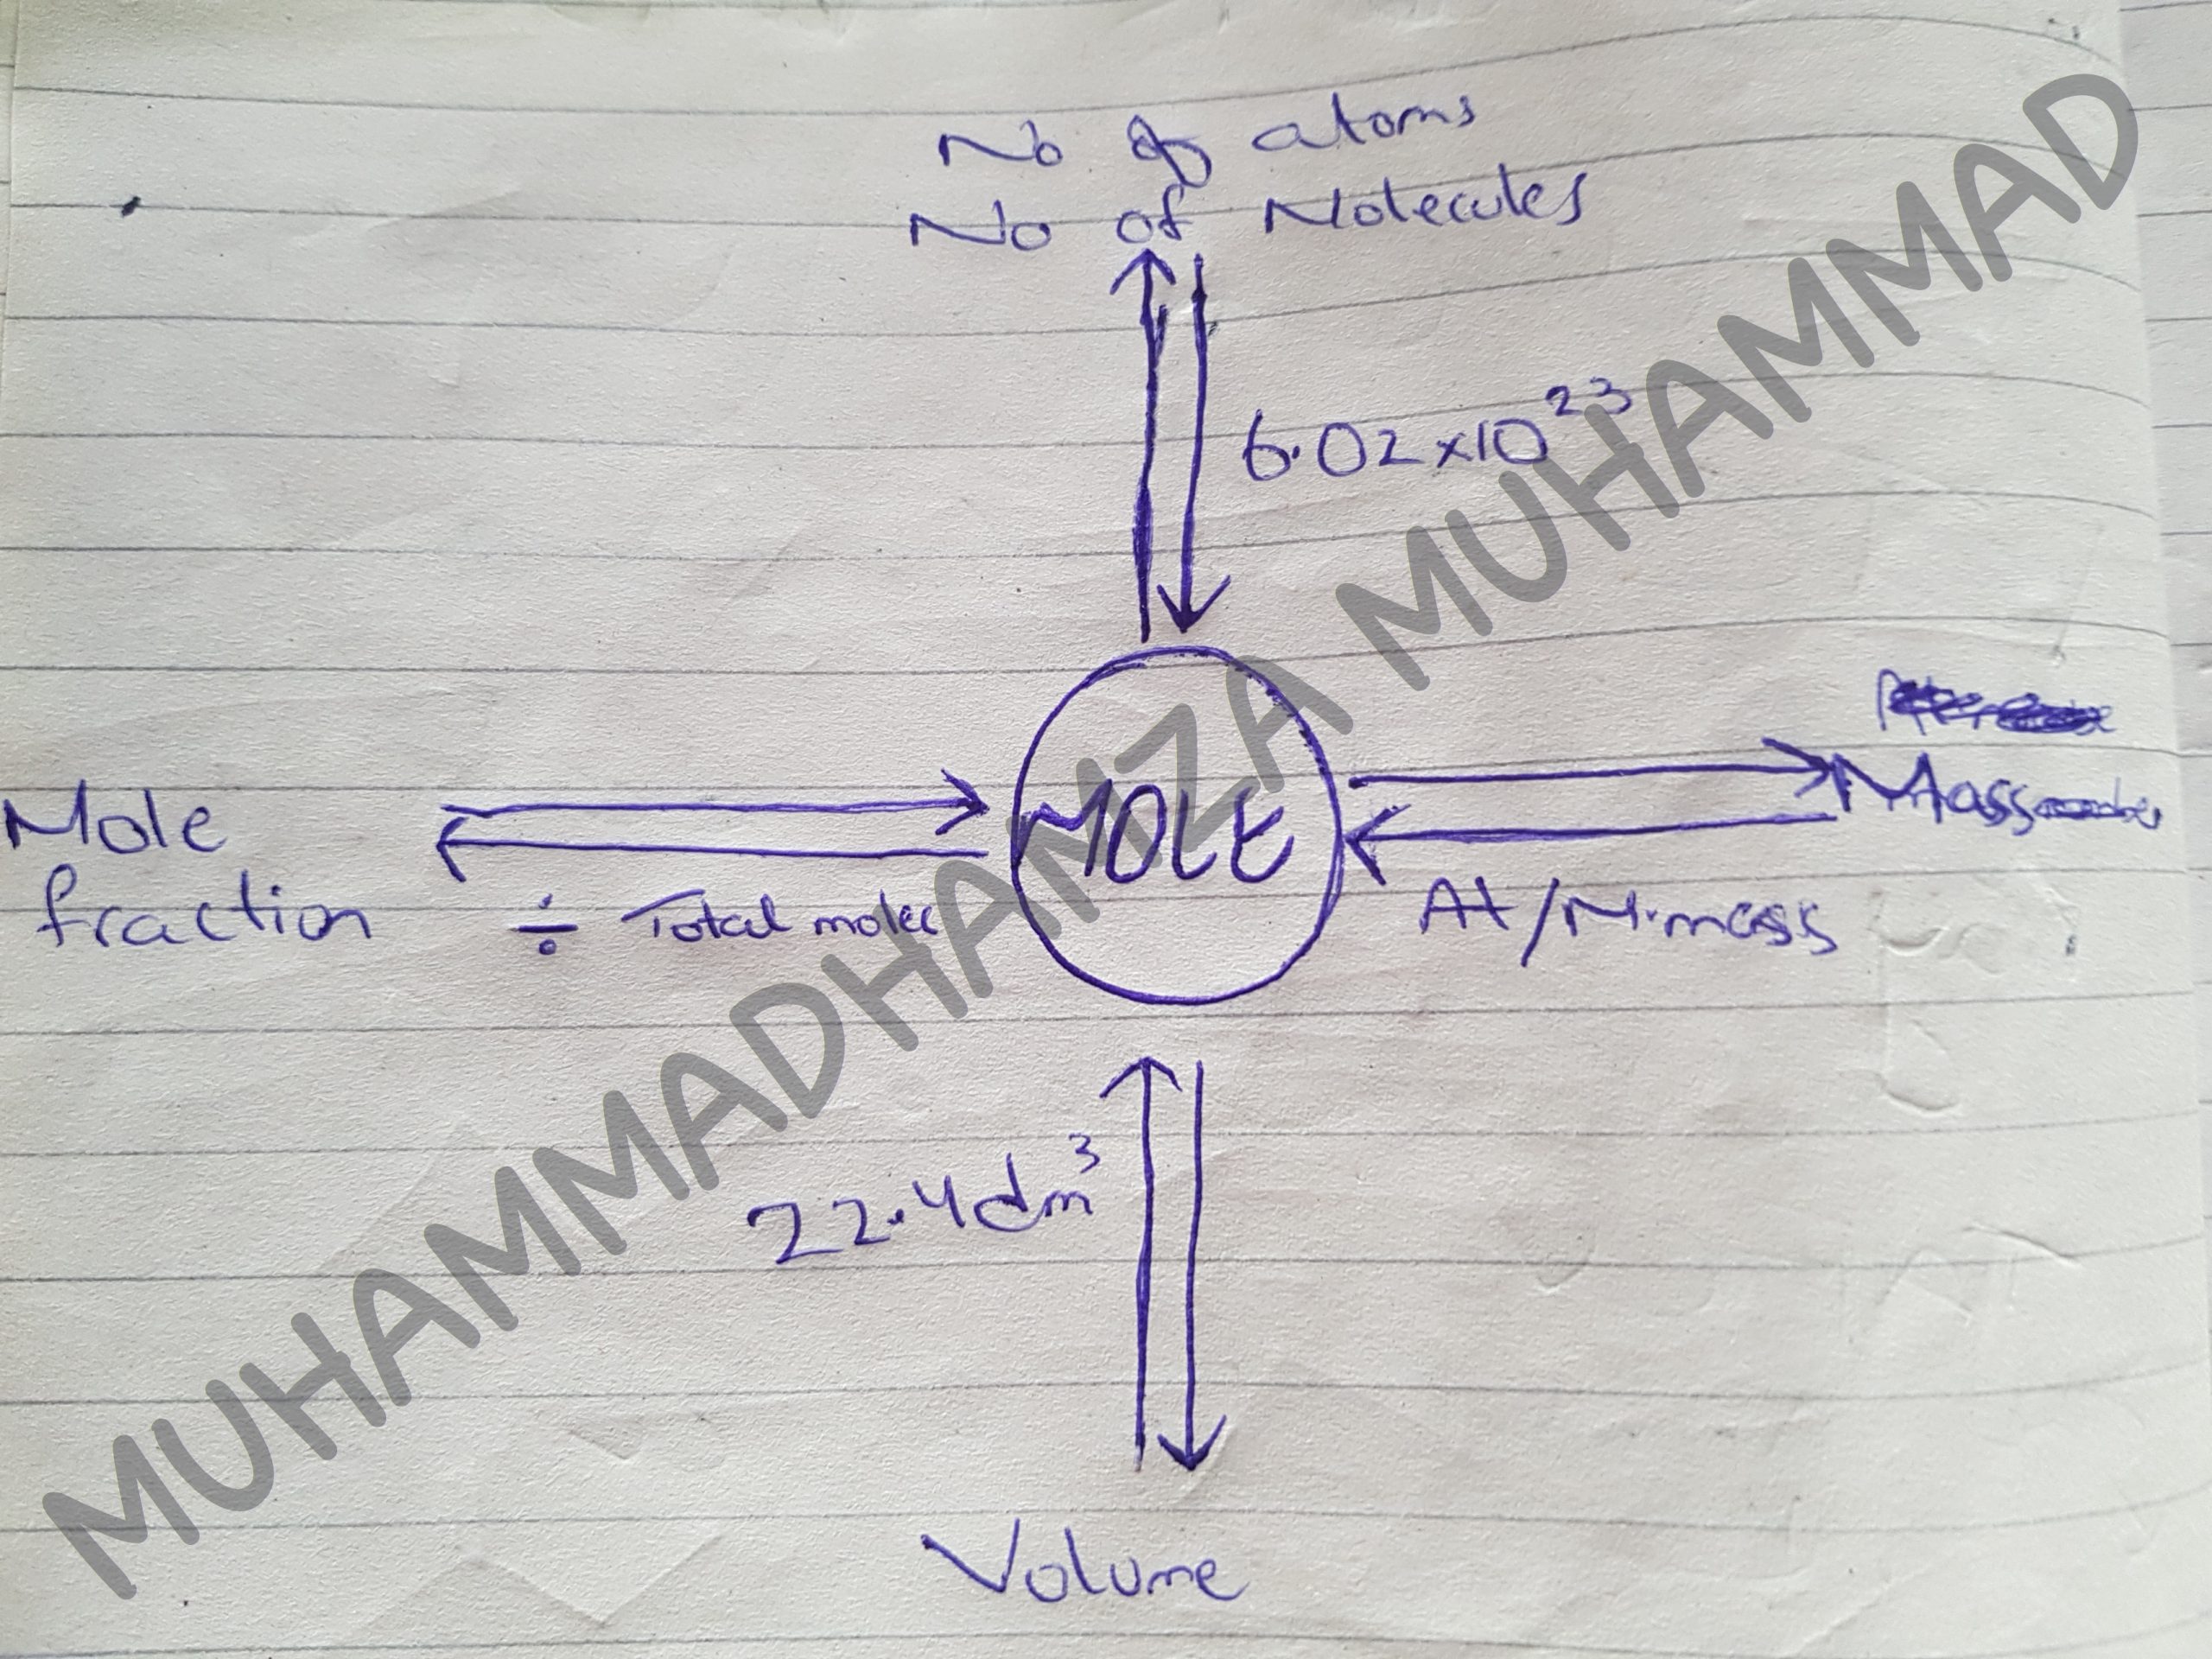 No of atoms
No of Molecules
6.02x10²³
Mass
Mole
fraction
MOLE
÷ Total moles
At/M.mass
22.4dm³
Volume
MUHAMMADHAMZA MUHAMMAD